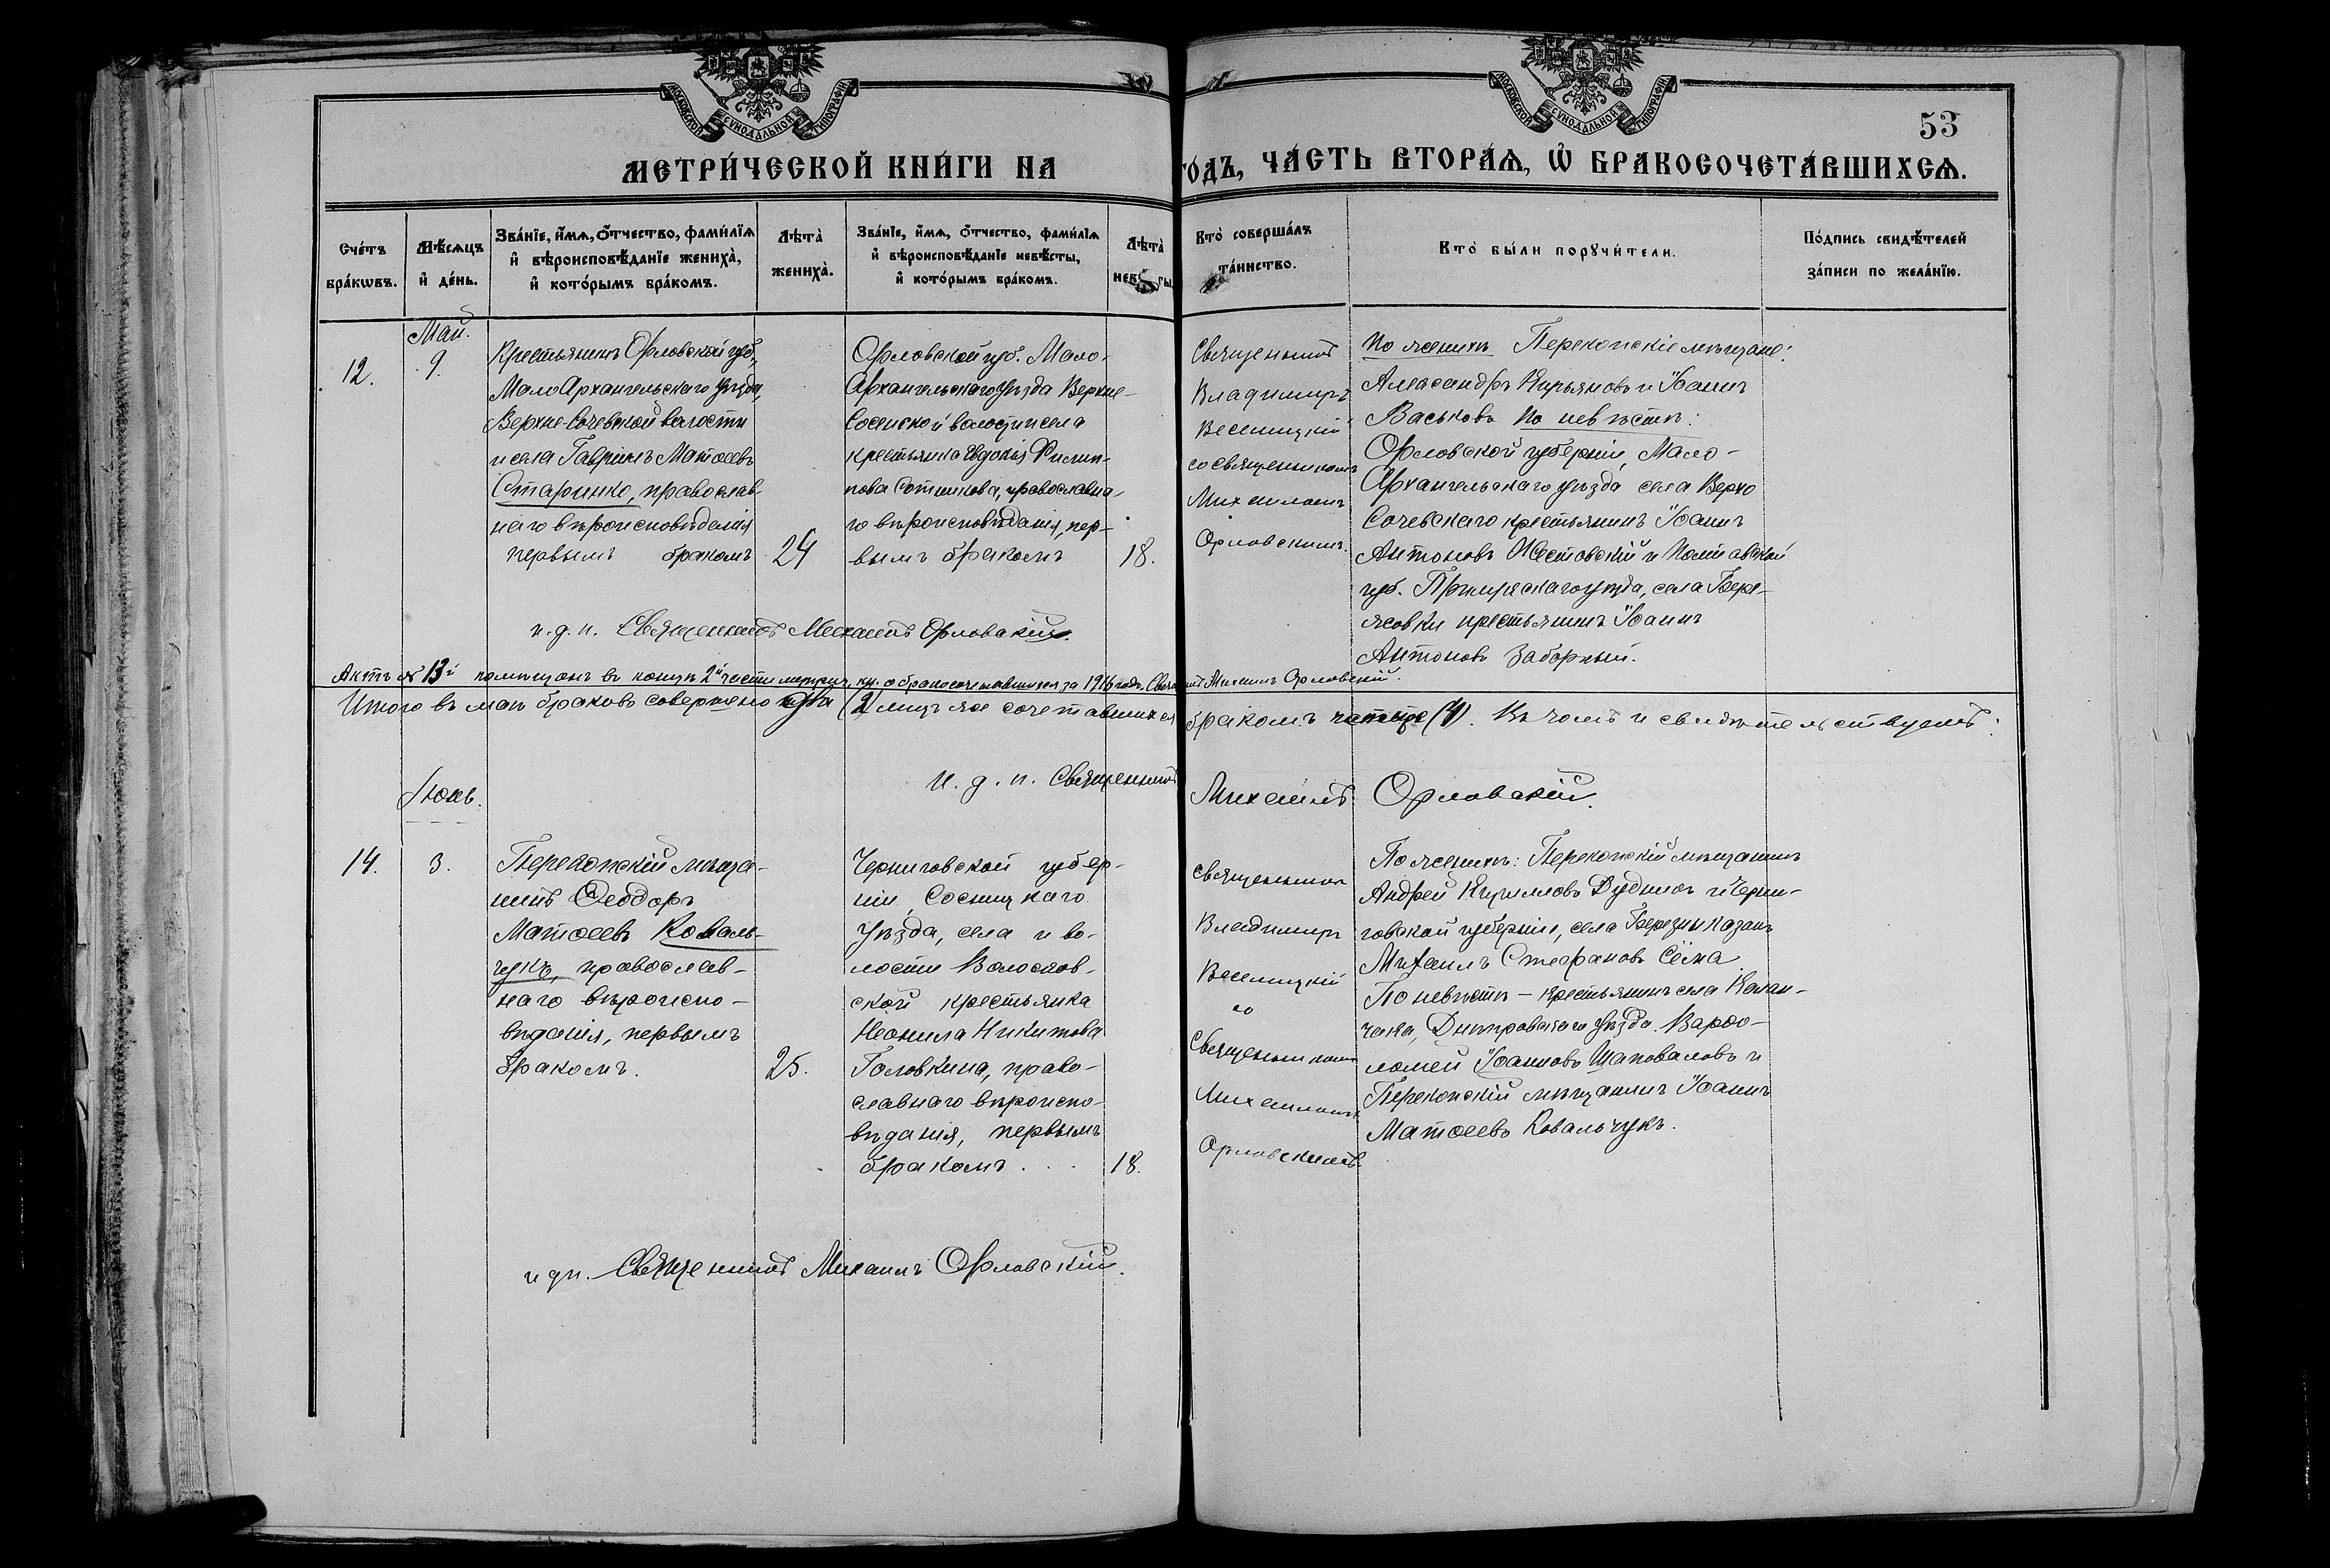 МОСКОВСКОЙ СѴНОДАЛЬНОЙ ТИПОГРАФІИ
МЕТРИ́ЧЕСКОЙ КНИ́ГИ НА
Сче́тъ бра́кѡвъ.
Мѣ́сяцъ и҆ де́нь.
Зва́нїе, и҆́мѧ, ѻ҆́тчество, фами́лїѧ и҆ вѣроисповѣ́данїе жениха̀, и҆ кото́рымъ бра́комъ.
Лѣта̀ жениха̀.
Зва́нїе, и҆́мѧ, ѻ҆́тчество, фами́лїѧ и҆ вѣроисповѣ́данїе невѣ́сты, и҆ кото́рымъ бра́комъ.
Лѣта̀
МОСКОВСКОЙ СѴНОДАЛЬНОЙ ТИПОГРАФІИ
53
ГО́ДЪ, ЧА́СТЬ ВТОРА́Ѧ, Ѡ҆ БРАКОСОЧЕТА́ВШИХСѦ.
Кто̀ соверша́лъ та́инство.
Кто̀ бы́ли порꙋчи́тели.
По́дпись свидѣ́телей за́писи по жела́нїю.
12.
Май.
9.
Крестьянинъ Орловской губ.,
МалоАрхангельскаго уѣзда,
Верхне-Сочевской волости
и села Гавріилъ Матѳеевъ
Старинко, православ-
наго вѣроисповѣданія
первымъ бракомъ
24
Орловской губ. Мало-
Архангельскаго уѣзда Верхне-
Сосенской волости села
крестьянка Евдокія Филип-
пова Сотникова, православна-
го вѣроисповѣданія, пер-
вымъ бракомъ
18.
Священникъ
Владимиръ
Веселицкій
со священникомъ
Михаиломъ
Орловскимъ.
По женихѣ Перекопскіе мѣщане:
Александръ Кирьяновъ и Іоаннъ
Васьковъ по невѣстѣ:
Орловской губерніи, Мало-
Архангельскаго уѣзда села Верхо
Сочевскаго крестьянинъ Іоаннъ
Антоновъ Жестовскій и Полтавской
губ. уѣзда, села
крестьянинъ Іоаннъ
Антоновъ Заборный.
и. д. п. Священникъ Михаилъ Орловскій.
Актъ № 13й помѣщенъ въ концѣ 2й части метрич. кн. о бракосочетавшихся за 1916 годъ. Михаилъ Орловскій.
Итого въ маѣ браковъ совершено два (2 лицъ же сочетавшихся бракомъ (4). Въ чемъ и свидѣтельствуетъ:
и. д. п. Священникъ Михаилъ Орловскій.
Іюнь.
14.
3.
Перекопскій мѣща-
нинъ Ѳеодоръ
Матѳеевъ Коваль-
чукъ, православ-
наго вѣроиспо-
вѣданія, первымъ
бракомъ.
25.
Черниговской губер-
ніи, Сосницкаго
уѣзда, села и во-
лости Волосков-
ской крестьянка
Неонила Никитова
Головкина, право-
славнаго вѣроиспо-
вѣданія, первымъ
бракомъ.
18.
Священникъ
Владимиръ
Веселицкій
со
Священникомъ
Михаиломъ
Орловскимъ.
По женихѣ: Перекопскій мѣщанинъ
Андрей Кирилловъ Дудникъ и Черни-
говской губерніи, села Березы казакъ
Михаилъ Стефановъ Сёма
По невѣстѣ – крестьянинъ села Калан-
чака, Днѣпровскаго уѣзда. Варѳо-
ломей Іоанновъ Шаповаловъ и
Перекопскій мѣщанинъ Іоаннъ
Матѳеевъ Ковальчукъ.
и. д. п. Священникъ Михаилъ Орловскій.